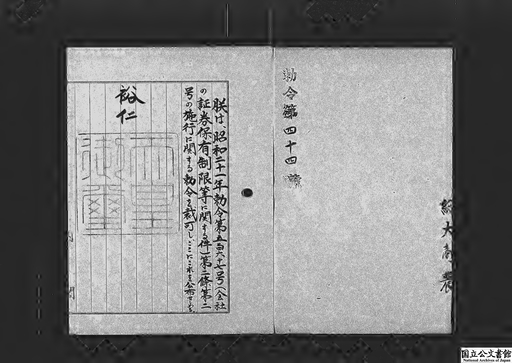 勅令第四十四號
朕は、昭和二十一年勅令第五百六十七号(会社
の証券保有制限等に関する件)第二條第二
号の施行に関する勅令を裁可し、ここにこれを公布せしめる。
裕仁
天皇
御璽
国立公文書館
National Archives of Japan